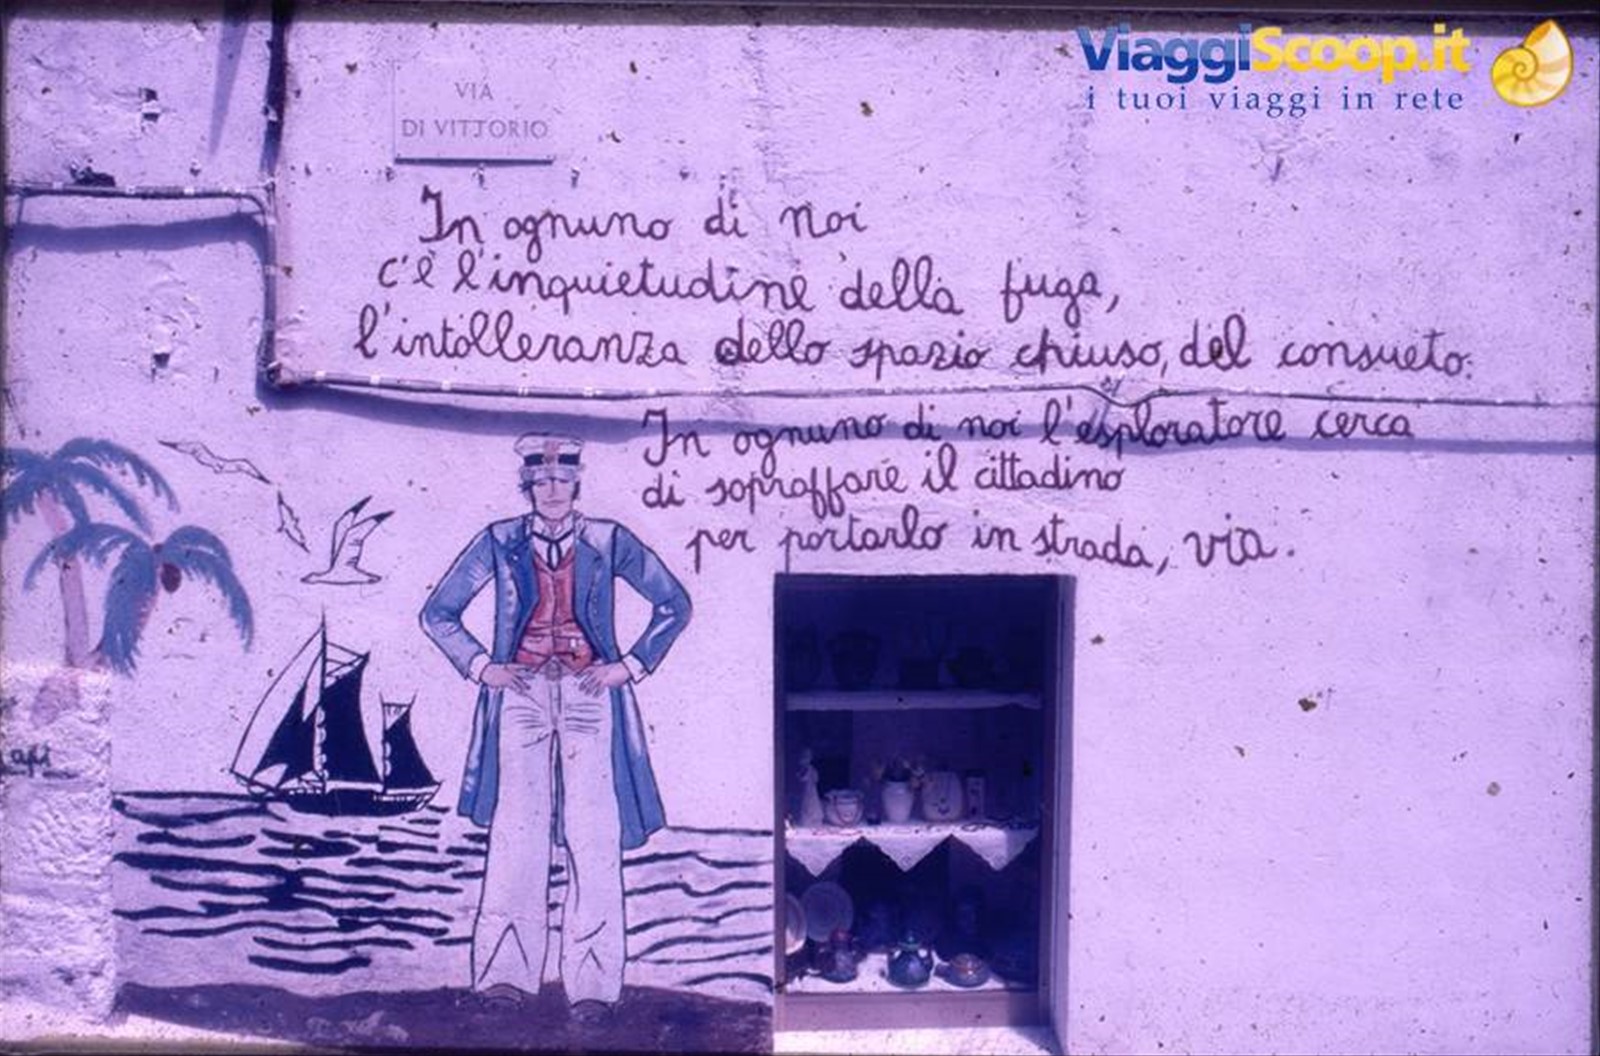 ViaggiScoop.it
i tuoi viaggi in rete
VIA
DI VITTORIO
In ognuno di noi
c'è l'inquietudine della fuga,
l'intolleranza dello spazio chiuso, del consueto.
In ognuno di noi l'esploratore cerca
di sopraffare il cittadino
per portarlo in strada, via.